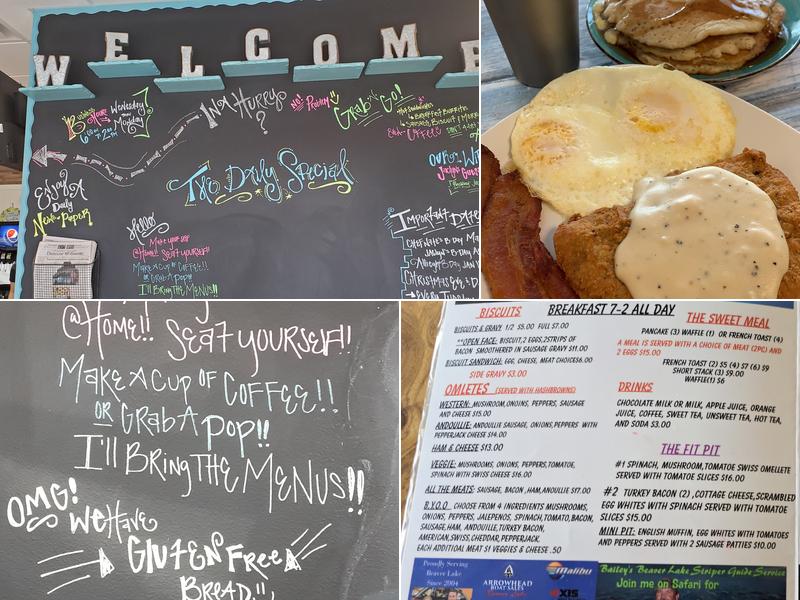 WELCOME
Business Hours
Wednesday thru Monday
IN A HURRY?
NO! Problem!
Grab n Go!
Breakfast Burrito
Sausage, Biscuit
COFFEE
The Daily Special
ENJOY A
Daily
News Paper
Hello!
Make your self
@Home!! SEAT YOURSELF!!
MAKE A CUP OF COFFEE!!
OR GRAB A POP!!
I'LL BRING THE MENUS!!
IMPORTANT DATES
CHRISTMAS
pepsi
@Home!! SEAT YOURSELF!!
MAKE A CUP OF COFFEE!!
OR GRAB A POP!!
I'LL BRING THE MENUS!!
OMG!
WE HAVE
GLUTEN FREE
BREAD!!
BREAKFAST 7-2 ALL DAY
BISCUITS
BISCUITS & GRAVY 1/2 $5.00 FULL $7.00
**OPEN FACE: BISCUIT, 2 EGGS, 2STRIPS OF
BACON SMOOTHERED IN SAUSAGE GRAVY $11.00
BISCUIT SANDWICH: EGG, CHEESE, MEAT CHOICE$6.00
SIDE GRAVY $3.00
OMLETES (SERVED WITH HASHBROWNS)
WESTERN: MUSHROOM,ONOINS, PEPPERS, SAUSAGE
AND CHEESE $15.00
ANDOUILLE: ANDOUILLE SAUSAGE, ONIONS,PEPPERS WITH
PEPPERJACK CHEESE $14.00
HAM & CHEESE $13.00
VEGGIE: MUSHROOMS, ONIONS, PEPPERS,TOMATOE,
SPINACH WITH SWISS CHEESE $16.00
ALL THE MEATS: SAUSAGE, BACON ,HAM,ANOUILLE $17.00
B.Y.O.O CHOOSE FROM 4 INGREDIENTS MUSHROOMS,
ONIONS, PEPPERS, JALEPENOS, SPINACH,TOMATO,BACON,
SAUSAGE,HAM, ANDOUILLE,TURKEY BACON,
AMERICAN,SWISS,CHEDDAR, PEPPERJACK.
EACH ADDITIONAL MEAT $1 VEGGIES & CHEESE .50
THE SWEET MEAL
PANCAKE (3) WAFFLE (1) OR FRENCH TOAST (4)
A MEAL IS SERVED WITH A CHOICE OF MEAT (2PC) AND
2 EGGS $15.00
FRENCH TOAST (2) $5 (4) $7 (6) $9
SHORT STACK (3) $9.00
WAFFLE(1) $6
DRINKS
CHOCOLATE MILK OR MILK, APPLE JUICE, ORANGE
JUICE, COFFEE, SWEET TEA, UNSWEET TEA, HOT TEA,
AND SODA $3.00
THE FIT PIT
#1 SPINACH, MUSHROOM,TOMATO SWISS OMELETTE
SERVED WITH TOMATO SLICES $16.00
#2 TURKEY BACON (2) ,COTTAGE CHEESE,SCRAMBLED
EGG WHITES WITH SPINACH SERVED WITH TOMATOE
SLICES $15.00
MINI PIT: ENGLISH MUFFIN, EGG WHITES WITH TOMATOES
AND PEPPERS SERVED WITH 2 SAUSAGE PATTIES $10.00
Proudly Serving
Beaver Lake
Since 2004
ARROWHEAD
BOAT SALES
Malibu
AXIS
Bailey's Beaver Lake Striper Guide Service
Join me on Safari for